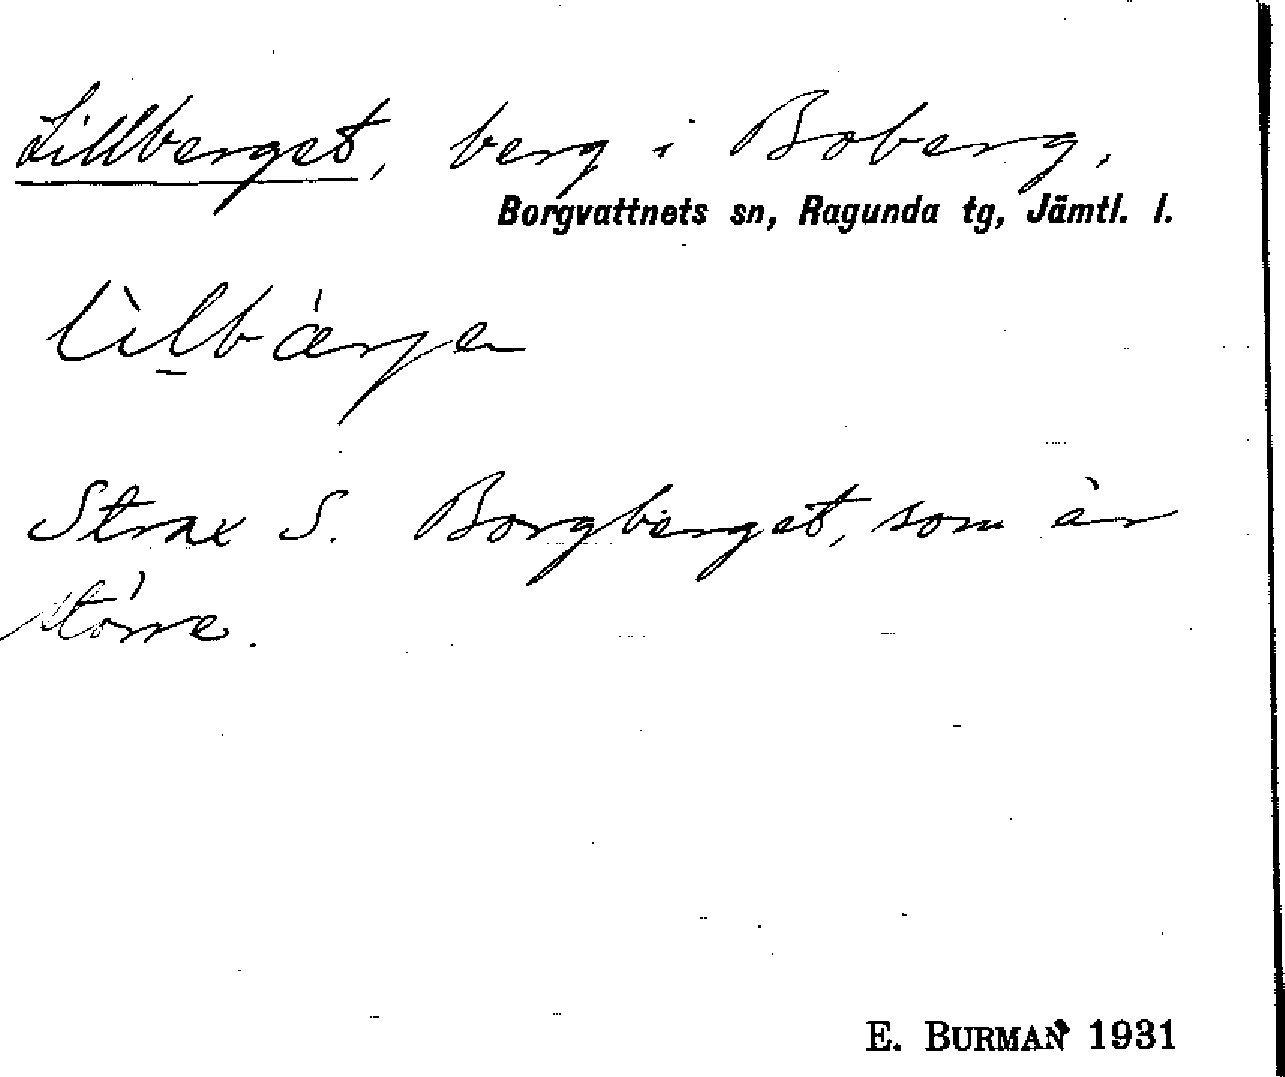 Lillberget, berg i Boberg.
Borgvattnets sn, Ragunda tg, Jämtl. l.
lìlbǽrjen
Strax S. Borgberget, som är
större.
E. BURMAN 1931